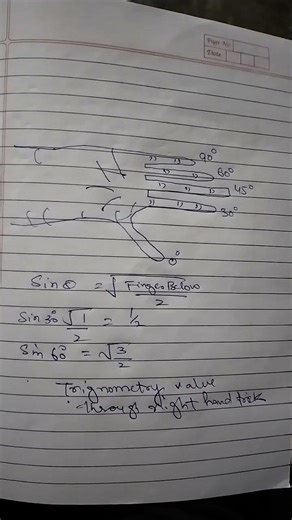 Page No.
Date
90°
60°
45°
30°
0°
Sin θ = √Finger Below/2
Sin 30° √1/2 = 1/2
Sin 60° = √3/2
Trignometry value
through right hand trick